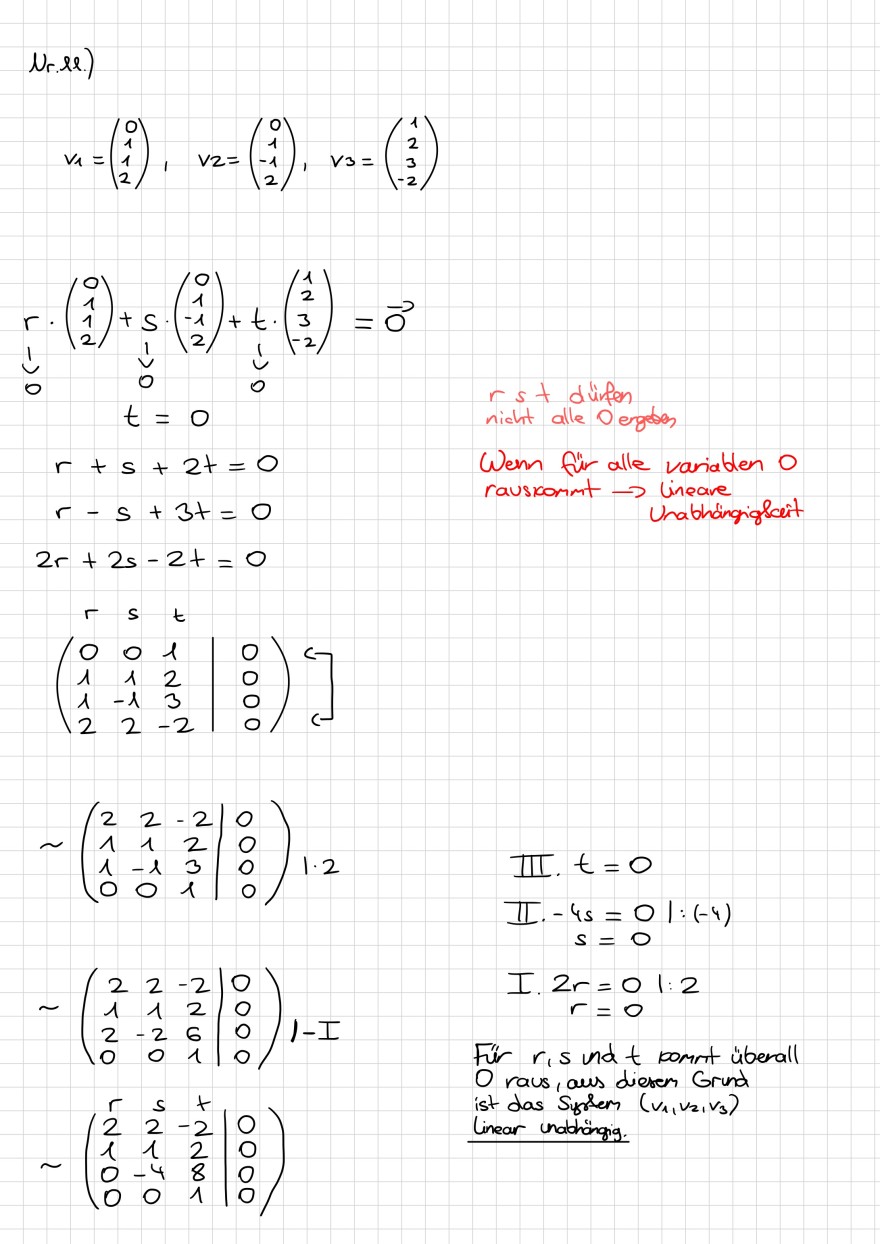 Nr. 11.)
v1 = (0 1 1 2), v2 = (0 1 -1 2), v3 = (1 2 3 -2)
r · (0 1 1 2) + s · (0 1 -1 2) + t · (1 2 3 -2) = 0⃗
↓ ↓ ↓
0 0 0
t = 0
r + s + 2t = 0
r - s + 3t = 0
2r + 2s - 2t = 0
r s t dürfen
nicht alle 0 ergeben
Wenn für alle variablen 0
rauskommt → lineare
Unabhängigkeit
r s t
0 0 1 | 0
1 1 2 | 0
1 -1 3 | 0
2 2 -2 | 0
~
2 2 -2 | 0
1 1 2 | 0
1 -1 3 | 0 |·2
0 0 1 | 0
~
2 2 -2 | 0
1 1 2 | 0
2 -2 6 | 0 |-I
0 0 1 | 0
r s t
~
2 2 -2 | 0
1 1 2 | 0
0 -4 8 | 0
0 0 1 | 0
III. t = 0
II. -4s = 0 |:(-4)
s = 0
I. 2r = 0 |:2
r = 0
Für r, s und t kommt überall
0 raus, aus diesem Grund
ist das System (v1, v2, v3)
linear unabhängig.